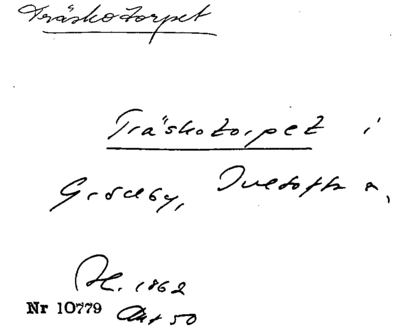 Träskotorpet
Träskotorpet i
Grödby, Ivetofta s,
Al. 1862
Nr 10779 Akt 50